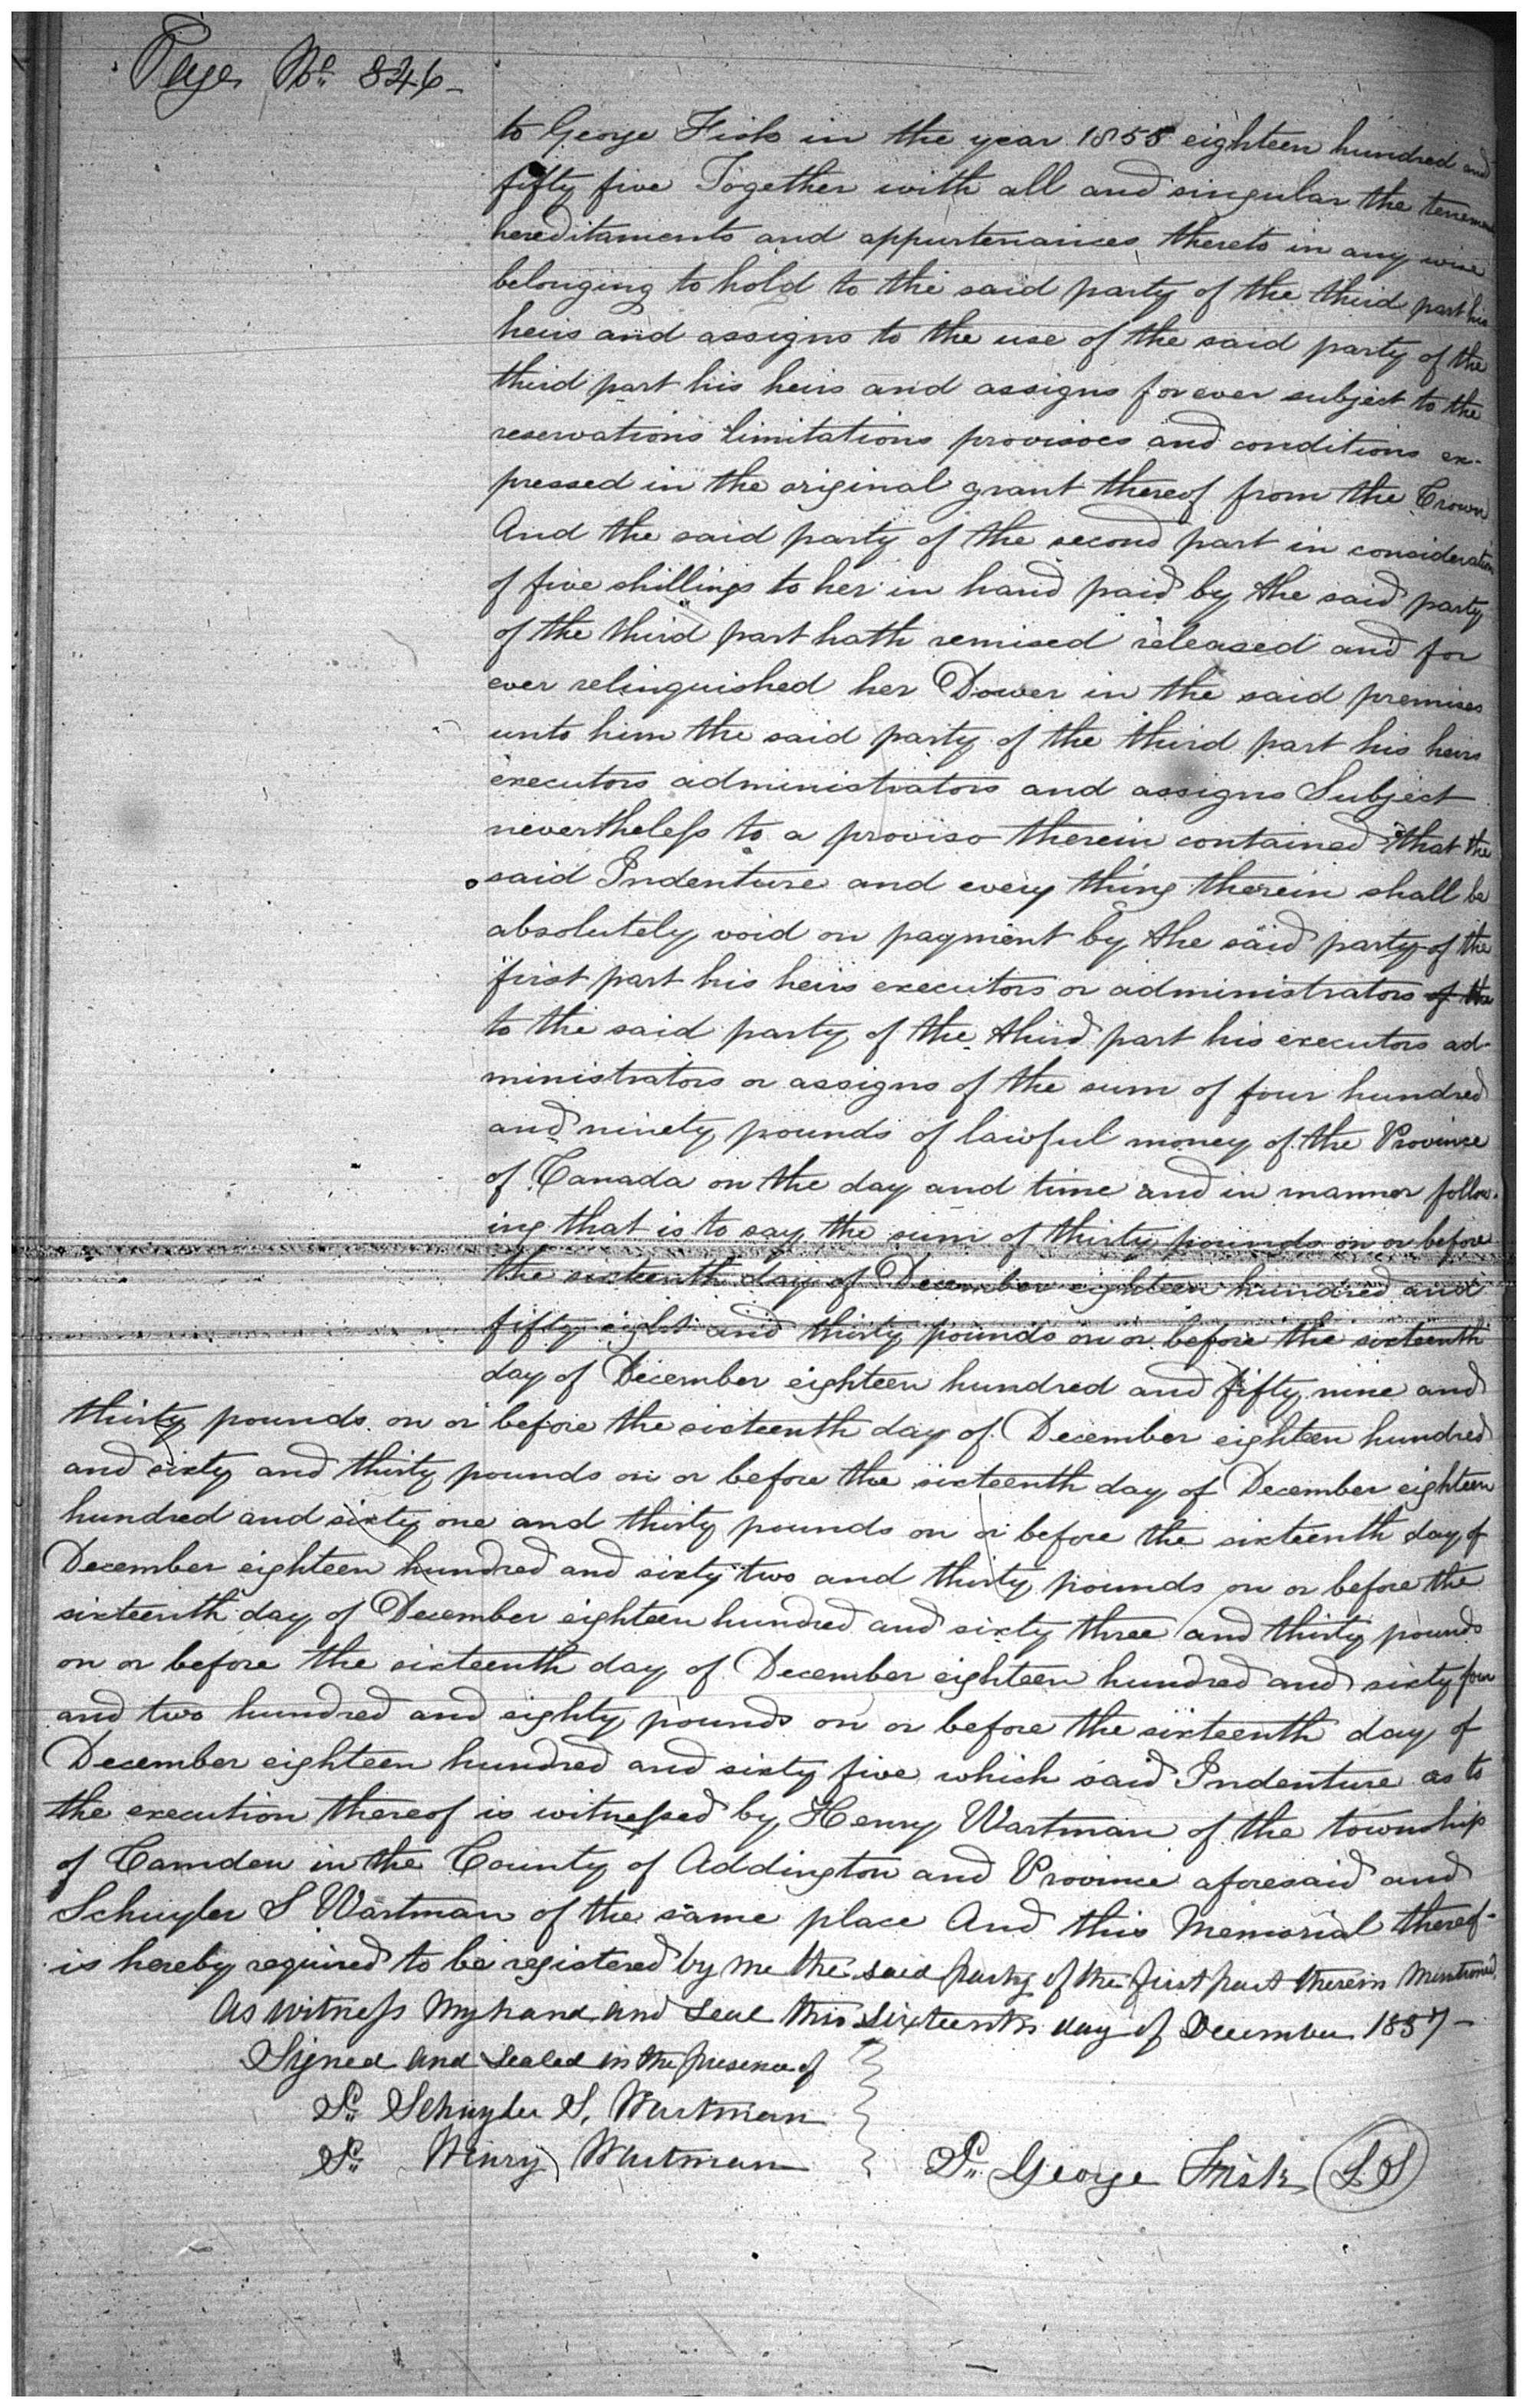 Page No. 846
to George Fisk in the year 1855 eighteen hundred and
fifty five Together with all and singular the
hereditaments and appurtenances thereto in any wise
belonging to hold to the said party of the third part his
heirs and assigns to the use of the said party of the
third part his heirs and assigns forever subject to the
reservations limitations provisoes and conditions ex-
pressed in the original grant thereof from the Crown
And the said party of the second part in consideration
of five shillings to her in hand paid by the said party
of the third part hath remised released and for
ever relinquished her Dower in the said premises
unto him the said party of the third part his heirs
executors administrators and assigns Subject
nevertheless to a proviso therein contained that the
said Indenture and every thing therein shall be
absolutely void on payment by the said party of the
first part his heirs executors or administrators of the
to the said party of the third part his executors ad-
ministrators or assigns of the sum of four hundred
and ninety pounds of lawful money of the Province
of Canada on the day and time and in manner follow-
ing that is to say the sum of thirty pounds on or before
the sixteenth day of December eighteen hundred and
fifty eight and thirty pounds on or before the sixteenth
day of December eighteen hundred and fifty nine and
thirty pounds on or before the sixteenth day of December eighteen hundred
and sixty and thirty pounds on or before the sixteenth day of December eighteen
hundred and sixty one and thirty pounds on or before the sixteenth day of
December eighteen hundred and sixty two and thirty pounds on or before the
sixteenth day of December eighteen hundred and sixty three and thirty pounds
on or before the sixteenth day of December eighteen hundred and sixty four
and two hundred and eighty pounds on or before the sixteenth day of
December eighteen hundred and sixty five which said Indenture as to
the execution thereof is witnessed by Henry Wartman of the township
of Camden in the County of Addington and Province aforesaid and
Schuyler S Wartman of the same place And this Memorial thereof-
is hereby required to be registered by me the said party of the first part therein Mentioned
As witness My hand and Seal this Sixteenth day of December 1857-
Signed and Sealed in the presence of
S. Schuyler S. Wartman
S. Henry Wartman
S. George Fisk LS